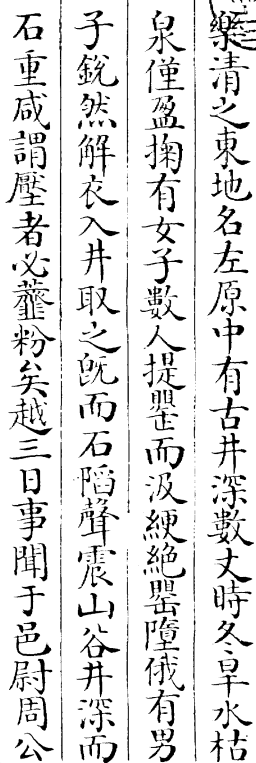 樂清之東地名左原中有古井深數丈時冬旱水枯
泉僅盈掬有女子數人提罌而汲綆絶罌墮俄有男
子銳然解衣入井取之旣而石陷聲震山谷井深而
石重咸謂壓者必虀粉矣越三日事聞于邑尉周公